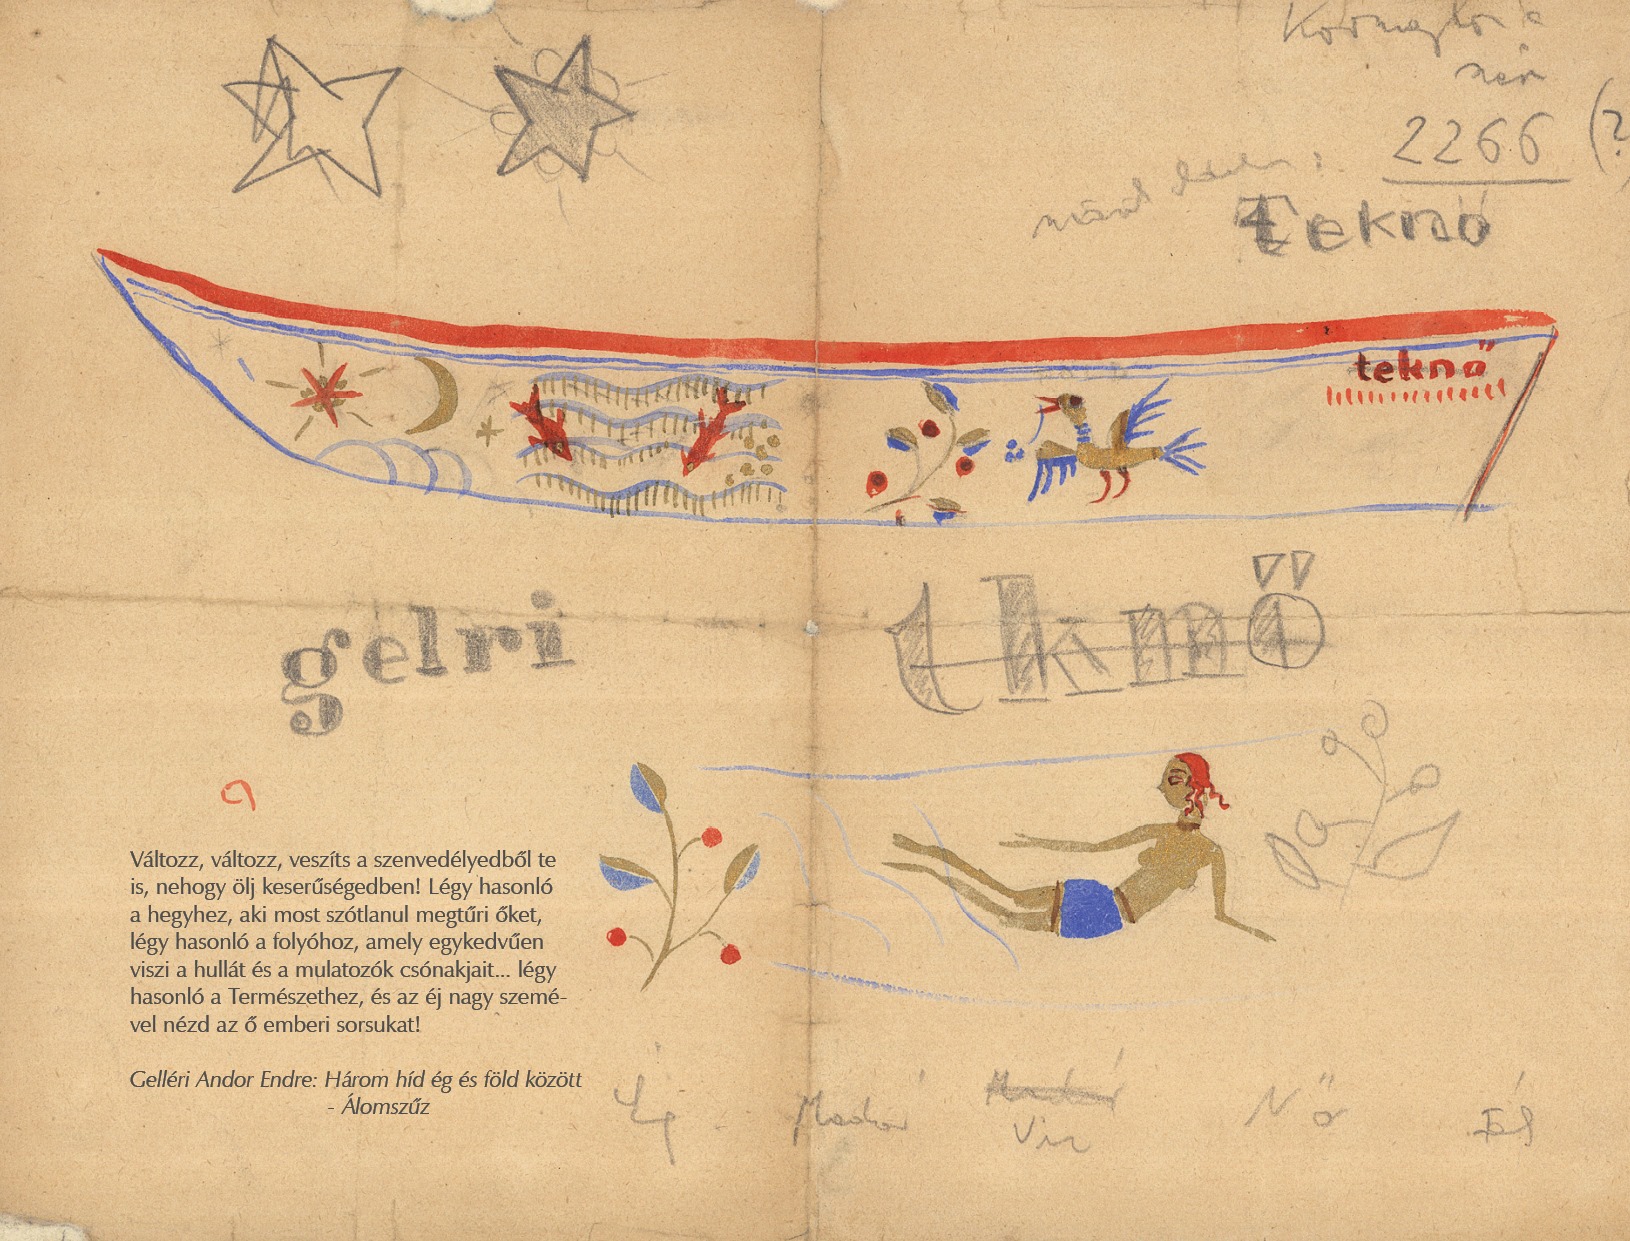 2266 (?)
Teknő
teknő
gelri
tknő
Változz, változz, veszíts a szenvedélyedből te
is, nehogy ölj keserűségedben! Légy hasonló
a hegyhez, aki most szótlanul megtűri őket,
légy hasonló a folyóhoz, amely egykedvűen
viszi a hullát és a mulatozók csónakjait... légy
hasonló a Természethez, és az éj nagy szemé-
vel nézd az ő emberi sorsukat!
Gelléri Andor Endre: Három híd ég és föld között
- Álomszűz
Madár Nő